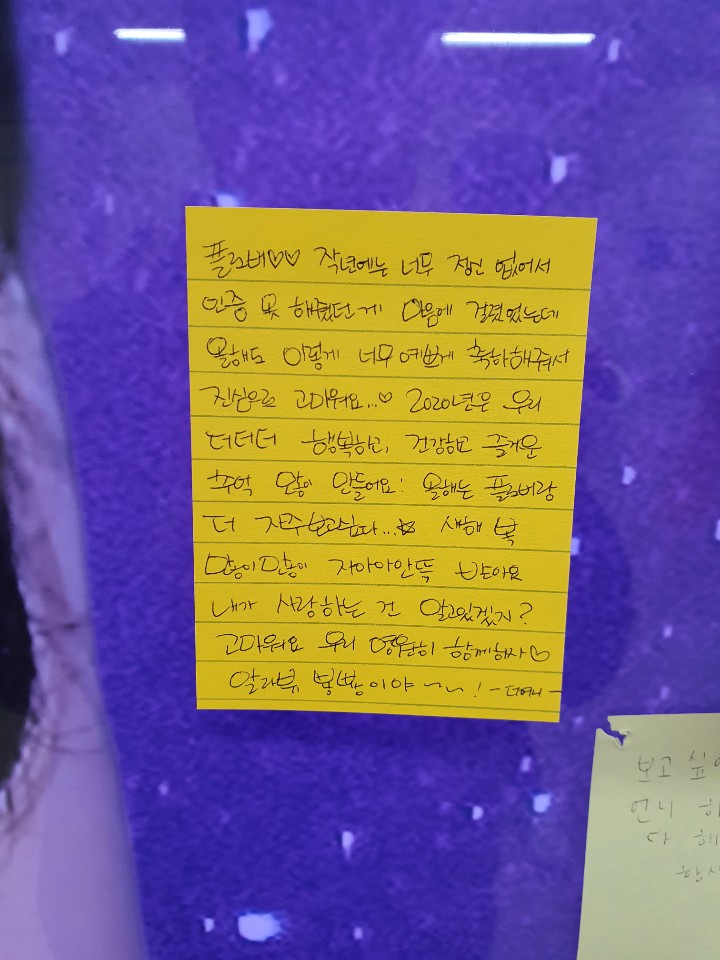 플로버♡♡ 작년에는 너무 정신 없어서
인증 못 해줬던 게 마음에 걸렸었는데
올해도 이렇게 너무 예쁘게 축하해줘서
진심으로 고마워요...♡ 2020년은 우리
더더더 행복하고, 건강하고 즐거운
추억 많이 만들어요! 올해는 플로버랑
더 자주보고싶다...☆ 새해 복
많이많이 자아아안뜩 받아요
내가 사랑하는 건 알고있겠지?
고마워요 우리 영원히 함께하자♡
알라뷰 뿅빵이야~~!
보고 싶
언니
다 해